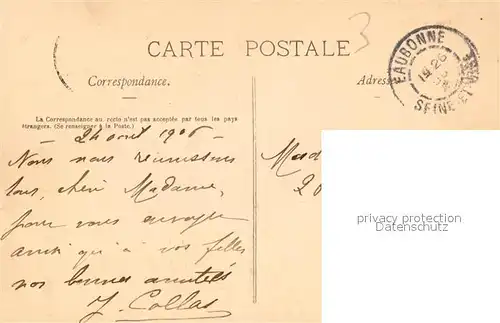 CARTE POSTALE
3
EAUBONNE
SEINE ET OISE
Correspondance.
Adresse
La Correspondance au recto n'est pas acceptée par tous les pays
étrangers. (Se renseigner à la Poste.)
24 avril 1906
Nous nous réunissons
tous, chère Madame,
pour vous envoyer
ainsi qu'à vos filles
nos bonnes amitiés
J. Collas
Mad
privacy protection
Datenschutz